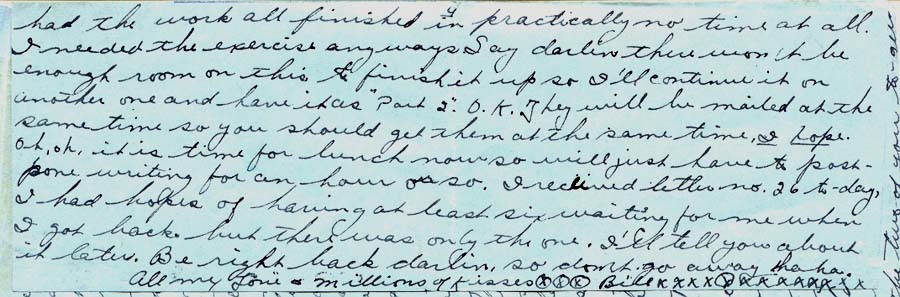 had the work all finished in practically no time at all.
I needed the exercise anyways. Say darlin there won't be
enough room on this to finish it up so I'll continue it on
another one and have it as "Part 2". O.K. They will be mailed at the
same time so you should get them at the same time, I hope.
Oh, oh, it is time for lunch now so will just have to post-
pone writing for an hour or so. I recieved letter no. 26 to-day,
I had hopes of having at least six waiting for me when
I got back but there was only the one. I'll tell you about
it later. Be right back darlin, so don't go away ha ha.
All my love & millions of kisses xxx Bill xxxxxxxxxxx
the two of you to-